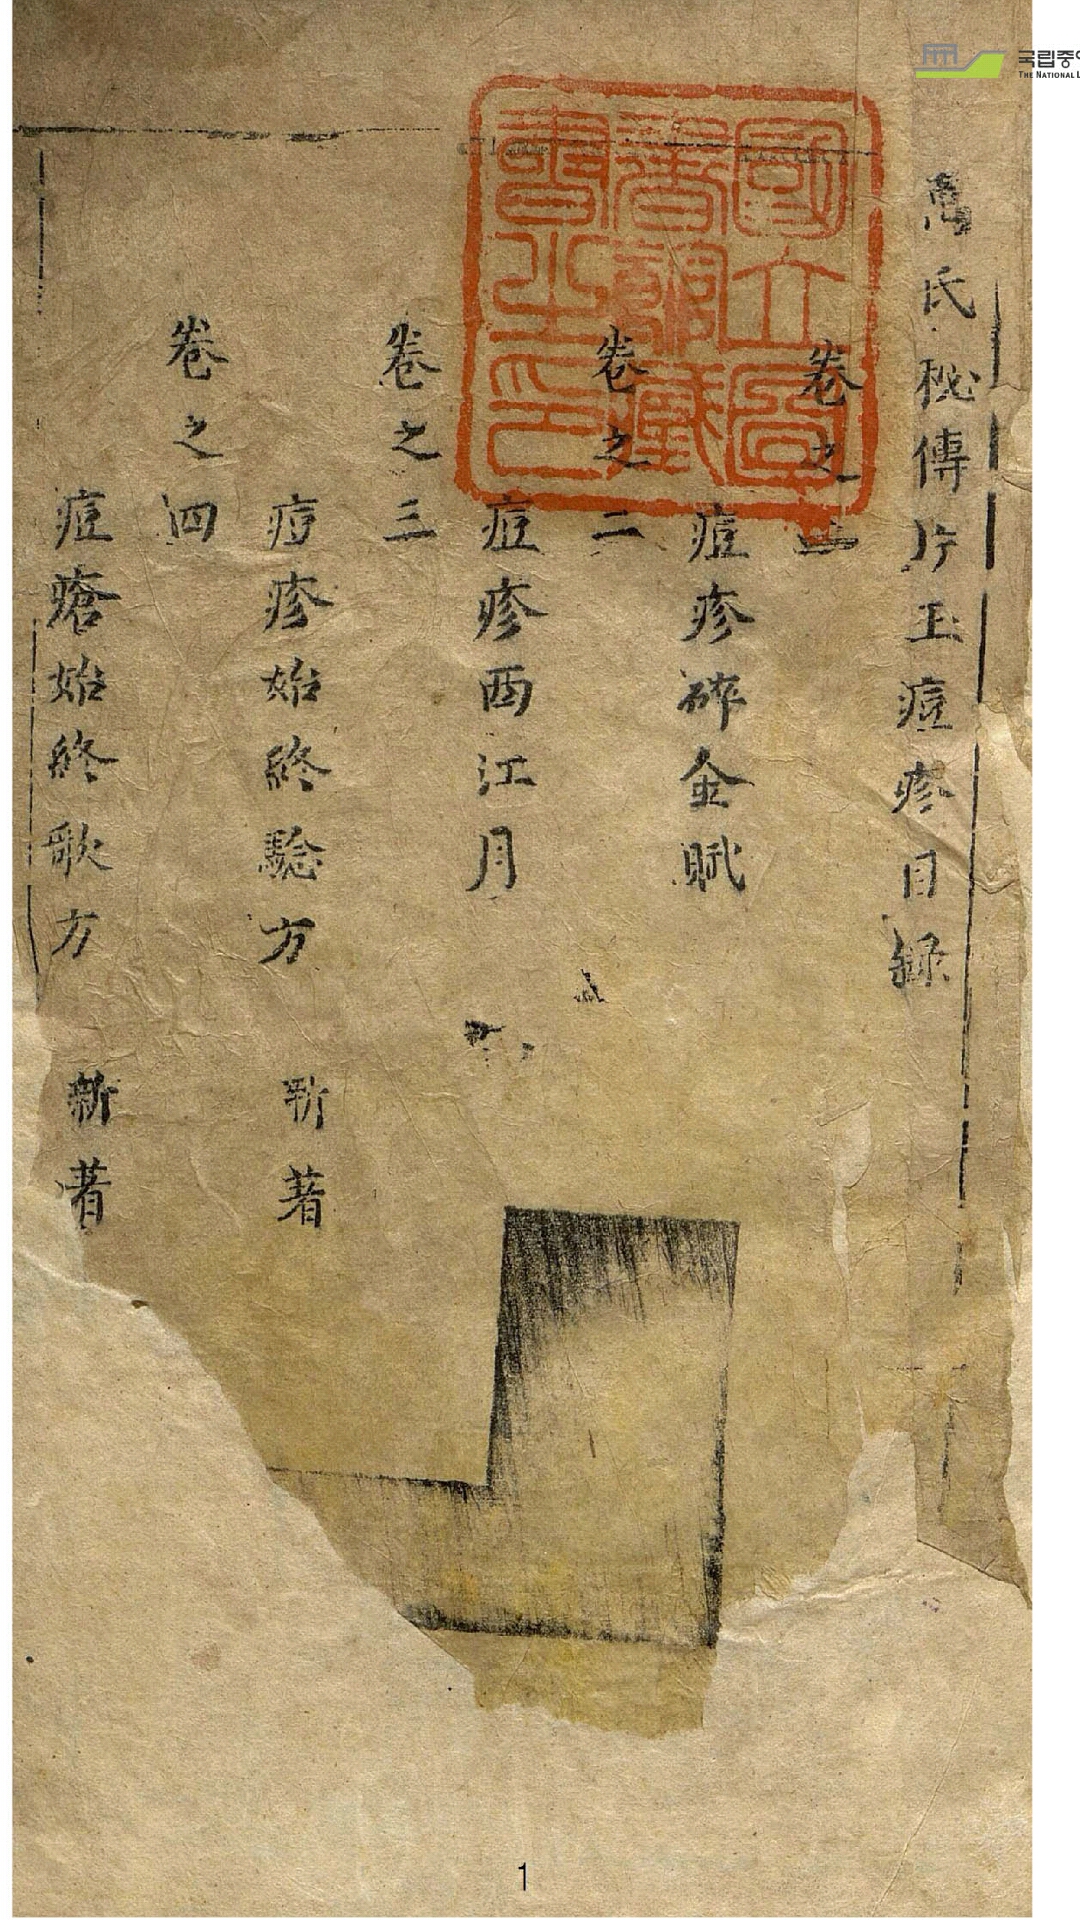 국립중
THE NATIONAL L
萬氏秘傳片玉痘疹目錄
國立圖書館藏書之印
卷之一
痘疹碎金賦
卷之二
痘疹西江月
卷之三
痘疹始終騐方 新著
卷之四
痘瘡始終歌方 新著
1